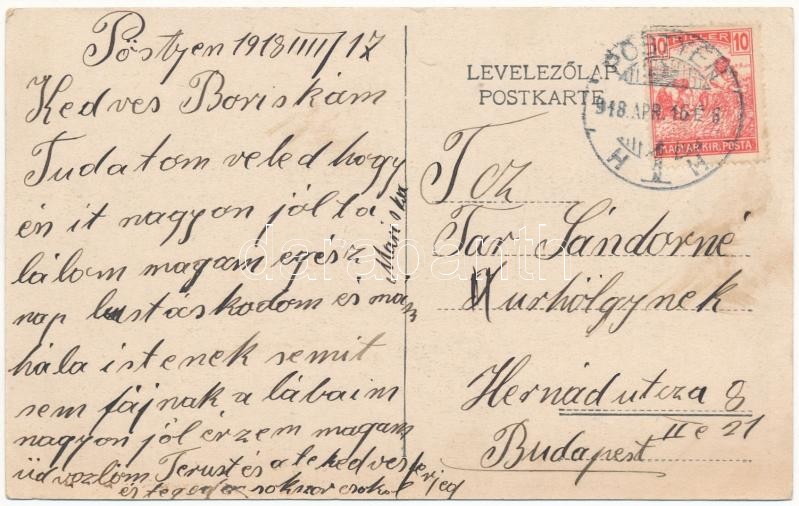 Pöstyen 1918 IIII/17
Kedves Boriskám
Tudatom veled hogy
én it nagyon jól ta
lálom magam egész
nap lustáskodom és már
hála istenek semit
sem fájnak a lábaim
nagyon jól érzem magam
üdvözlöm Terust és a te kedves férjed
és tégedet sokszor csokol
Mariska
LEVELEZŐLAP
POSTKARTE
10 FILLÉR 10
MAGYAR KIR. POSTA
PÖSTYÉN
918.APR.16
Tcz
Tar Sándorné
urhölgynek
Hernád utcza 8
IIe 21
Budapest
darabanth